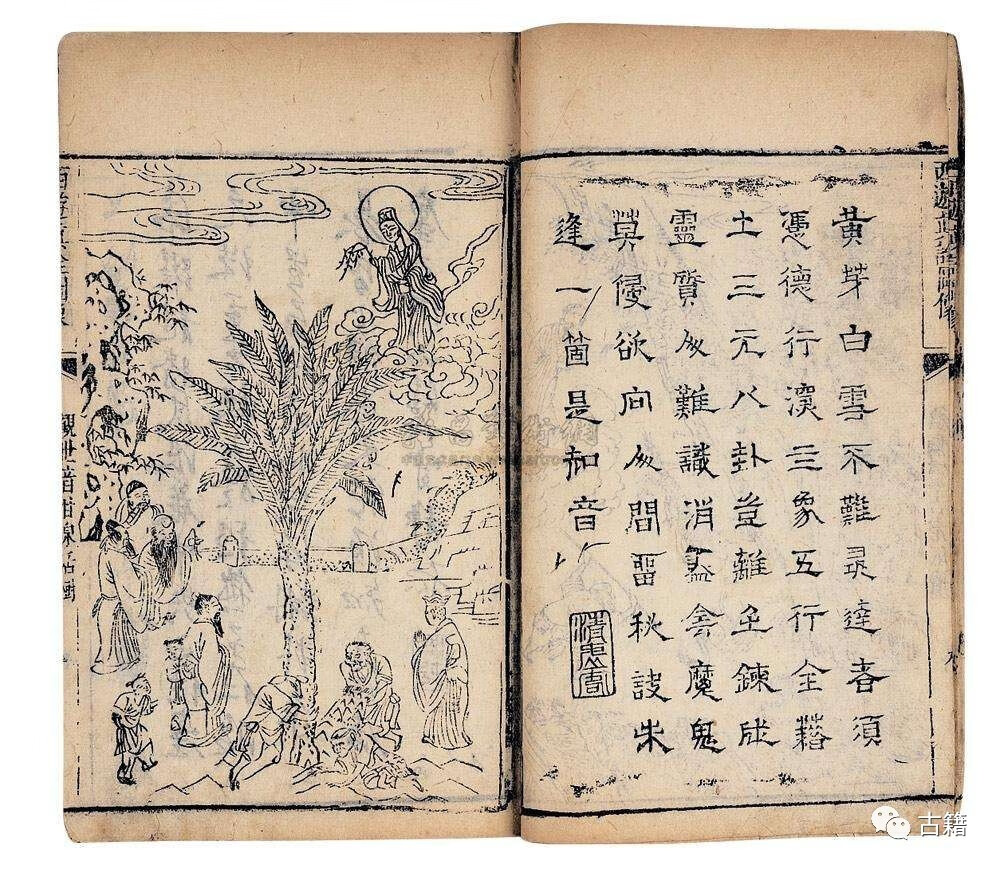 黃芽白雪不難尋達者須
憑德行深亖象五行全藉
土三元八卦豈離壬鍊成
靈質人難識消盡陰魔鬼
莫侵欲向人間畱秘訣未
逢一箇是知音
西遊
觀世音甘
古籍